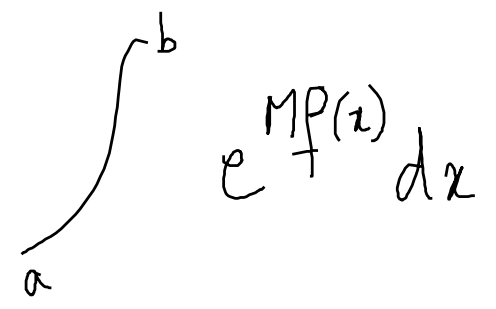 ∫ₐᵇ e^{Mf(x)} dx